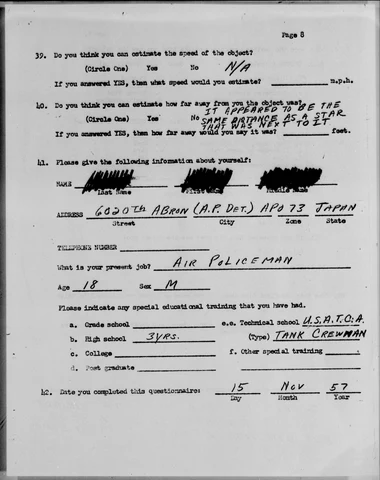 Page 8
39. Do you think you can estimate the speed of the object?
(Circle One) Yes No N/A
If you answered YES, then what speed would you estimate? m.p.h.
40. Do you think you can estimate how far away from you the object was?
IT APPEARED TO BE THE
(Circle One) Yes No SAME DISTANCE AS A STAR
THAT WAS NEXT TO IT
If you answered YES, then how far away would you say it was? feet.
41. Please give the following information about yourself:
NAME
Last Name
ADDRESS 6020th ABRON (A.P. DET.) APO 73 JAPAN
Street City Zone State
TELEPHONE NUMBER
What is your present job? AIR POLICEMAN
Age 18 Sex M
Please indicate any special educational training that you have had.
a. Grade school e.e. Technical school U.S.A.T.C.A.
b. High school 3 YRS. (Type) TANK CREWMAN
c. College f. Other special training
d. Post graduate
42. Date you completed this questionnaire: 15 Nov 57
Day Month Year